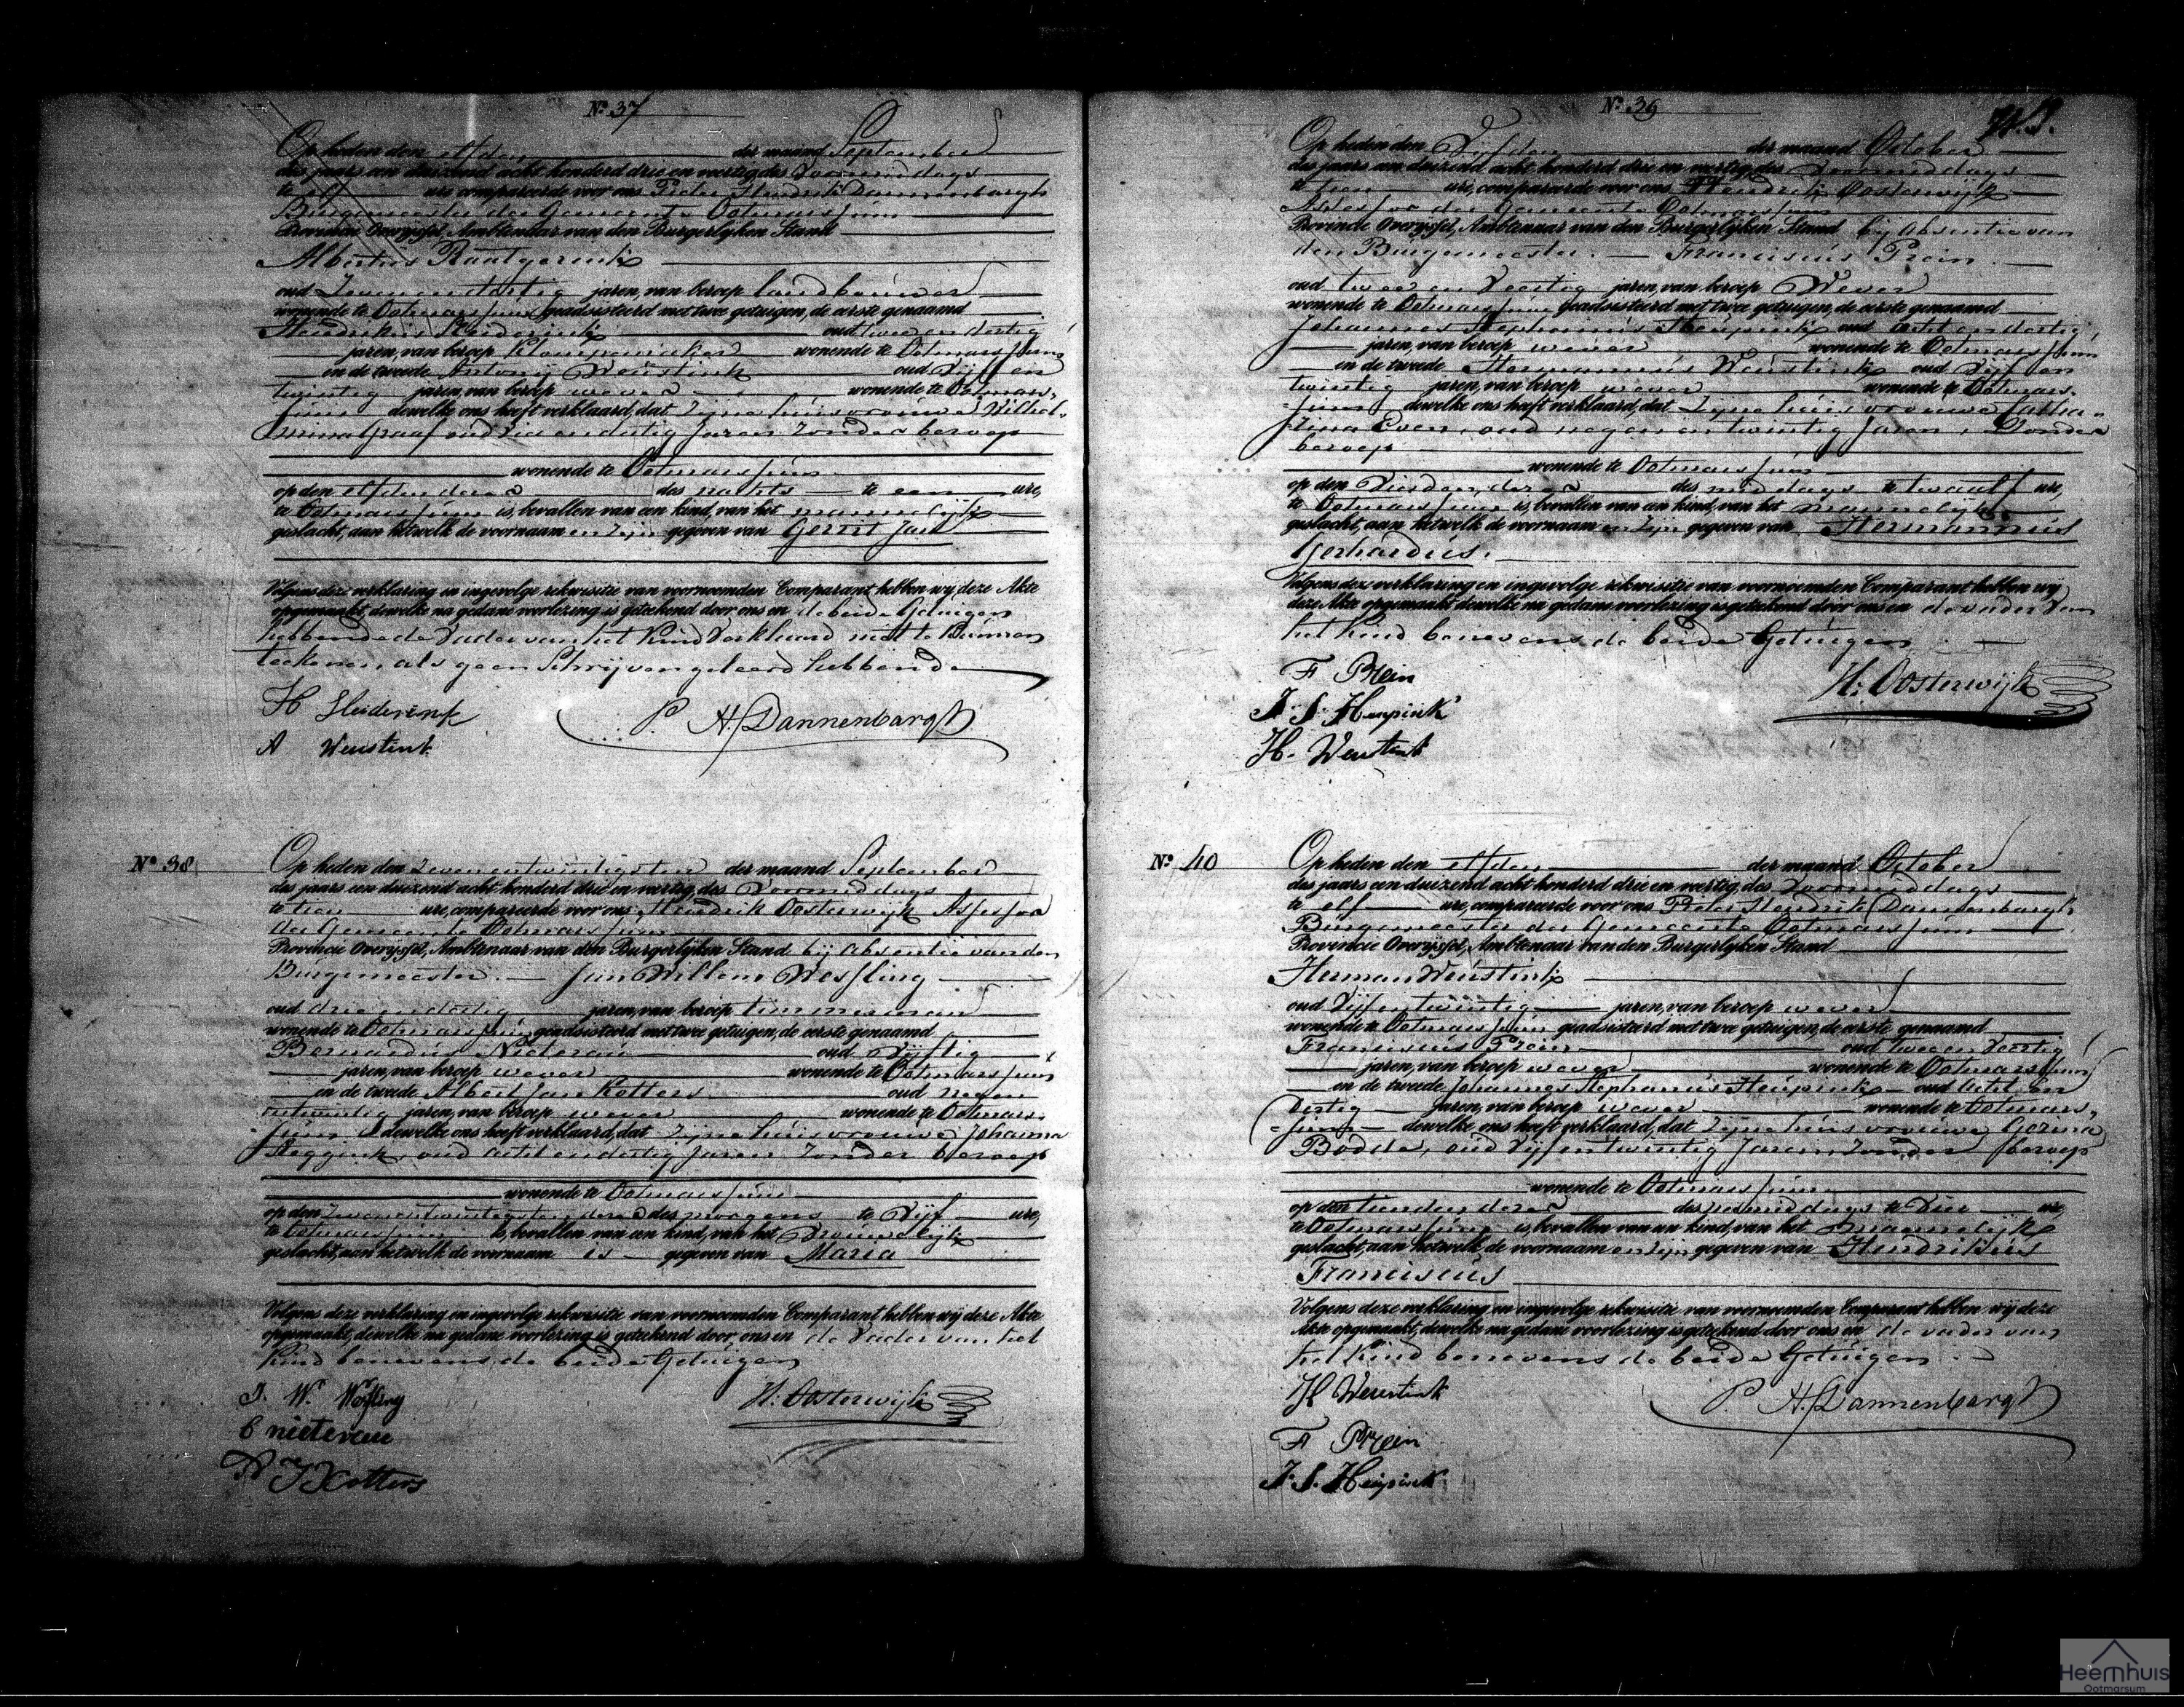 No. 37
Op heden den elfden der maand September
des jaars een duizend acht honderd drie en veertig des Voormiddags
te elf ure compareerde voor ons Peter Hendrik Dannenbargh
Burgemeester der Gemeente Ootmarssum
Provincie Overijssel, Ambtenaar van den Burgerlijken Stand
Albertus Raatgerink
oud Zevenendertig jaren, van beroep landbouwer
wonende te Ootmarssum geadsisteerd met twee getuigen, de eerste genaamd
Hendrikus oud twee en dertig
jaren, van beroep Klompenmaker wonende te Ootmarssum
en de tweede Antonij Weustink oud Vijf en
twintig jaren, van beroep wever wonende te Ootmars-
sum dewelke ons heeft verklaard, dat Zijne huisvrouwe Wilhel-
mina Graaf oud en dertig Jaren Zonder beroep
wonende te Ootmarssum
op den elfden dezer des nachts te een ure,
te Ootmarssum is bevallen van een kind, van het mannelijk
geslacht, aan hetwelk de voornaam en Zijn gegeven van Gerrit Jan
Volgens deze verklaring en ingevolge rekwisitie van voornoemden Comparant hebben wij deze Akte
opgemaakt, dewelke na gedane voorlezing is geteekend door ons en de beide Getuigen
hebbende de Vader van het Kind Verklaard niet te Kunnen
teekenen, als geen Schrijven geleerd hebbende
H
P. H. Dannenbargh
A Weustink
No. 38
Op heden den Zevenentwintigsten der maand September
des jaars een duizend acht honderd drie en veertig, des Voormiddags
te tien ure, compareerde voor ons Hendrik Oosterwijk Assessor
der Gemeente Ootmarssum
Provincie Overijssel, Ambtenaar van den Burgerlijken Stand bij absentie van den
Burgemeester. — Jan Willem Wesseling
oud drie en dertig jaren, van beroep timmerman
wonende te Ootmarssum geadsisteerd met twee getuigen, de eerste genaamd
Bernardus Nieterau oud Vijftig
jaren, van beroep wever wonende te Ootmarssum
en de tweede Albert Jan Kotters oud negen
entwintig jaren, van beroep wever wonende te Ootmars-
sum dewelke ons heeft verklaard, dat Zijne huisvrouwe Johanna
Steggink, oud acht en dertig Jaren Zonder beroep
wonende te Ootmarssum
op den Zevenentwintigsten dezer des morgens te Vijf ure,
te Ootmarssum is bevallen van een kind, van het Vrouwelijk
geslacht, aan hetwelk de voornaam is gegeven van Maria
Volgens deze verklaring en ingevolge rekwisitie van voornoemden Comparant hebben wij deze Akte
opgemaakt, dewelke na gedane voorlezing is geteekend door ons en de Vader van het
Kind benevens de beide Getuigen
J. W. Wesling
H: Oosterwijk
B nieterau
A J Kotters
No. 39
Op heden den Vijfden der maand October
des jaars een duizend acht honderd drie en veertig, des Voormiddags
te tien ure, compareerde voor ons Hendrik Oosterwijk
Assessor der Gemeente Ootmarssum
Provincie Overijssel, Ambtenaar van den Burgerlijken Stand bij absentie van
den Burgemeester. — Franciscus Prein
oud twee en Veertig jaren, van beroep Wever
wonende te Ootmarssum geadsisteerd met twee getuigen, de eerste genaamd
Johannes Stephanus Heupink oud acht en dertig
jaren, van beroep wever wonende te Ootmarssum
en de tweede Hermannus Weustink oud Vijf en
twintig jaren, van beroep wever wonende te Ootmars-
sum dewelke ons heeft verklaard, dat Zijne huisvrouwe Catha-
rina Even, oud negen en twintig Jaren, Zonder
beroep
wonende te Ootmarssum
op den Vierden dezer des middags te twaalf ure,
te Ootmarssum is bevallen van een kind, van het mannelijk
geslacht, aan hetwelk de voornaam en Zijn gegeven van Hermannus
Gerhardus.
Volgens deze verklaring en ingevolge rekwisitie van voornoemden Comparant hebben wij
deze Akte opgemaakt, dewelke na gedane voorlezing is geteekend door ons en de vader van
het Kind benevens de beide Getuigen
F Prein
H: Oosterwijk
J. S. Heupink
H. Weustink
No. 40
Op heden den elfden der maand October
des jaars een duizend acht honderd drie en veertig, des Voormiddags
te elf ure, compareerde voor ons Peter Hendrik Dannenbargh
Burgemeester der Gemeente Ootmarssum
Provincie Overijssel, Ambtenaar van den Burgerlijken Stand
Herman Weustink
oud Vijfentwintig jaren, van beroep wever
wonende te Ootmarssum geadsisteerd met twee getuigen, de eerste genaamd
Franciscus Prein oud twee en Veertig
jaren, van beroep wever wonende te Ootmarssum
en de tweede Johannes Stephanus Heupink oud Acht en
dertig jaren, van beroep wever wonende te Ootmars-
sum dewelke ons heeft verklaard, dat Zijne huisvrouwe
Bodde, oud Vijfentwintig Jaren Zonder beroep
wonende te Ootmarssum
op den tienden dezer des namiddags te Vier ure
te Ootmarssum is bevallen van een kind, van het mannelijk
geslacht, aan hetwelk de voornaam en Zijn gegeven van Hendrikus
Franciscus
Volgens deze verklaring en ingevolge rekwisitie van voornoemden Comparant hebben wij deze
Akte opgemaakt, dewelke na gedane voorlezing is geteekend door ons en de vader van
het Kind benevens de beide Getuigen
H Weustink
P. H. Dannenbargh
F Prein
J. S. Heupink
Heemhuis
Ootmarsum